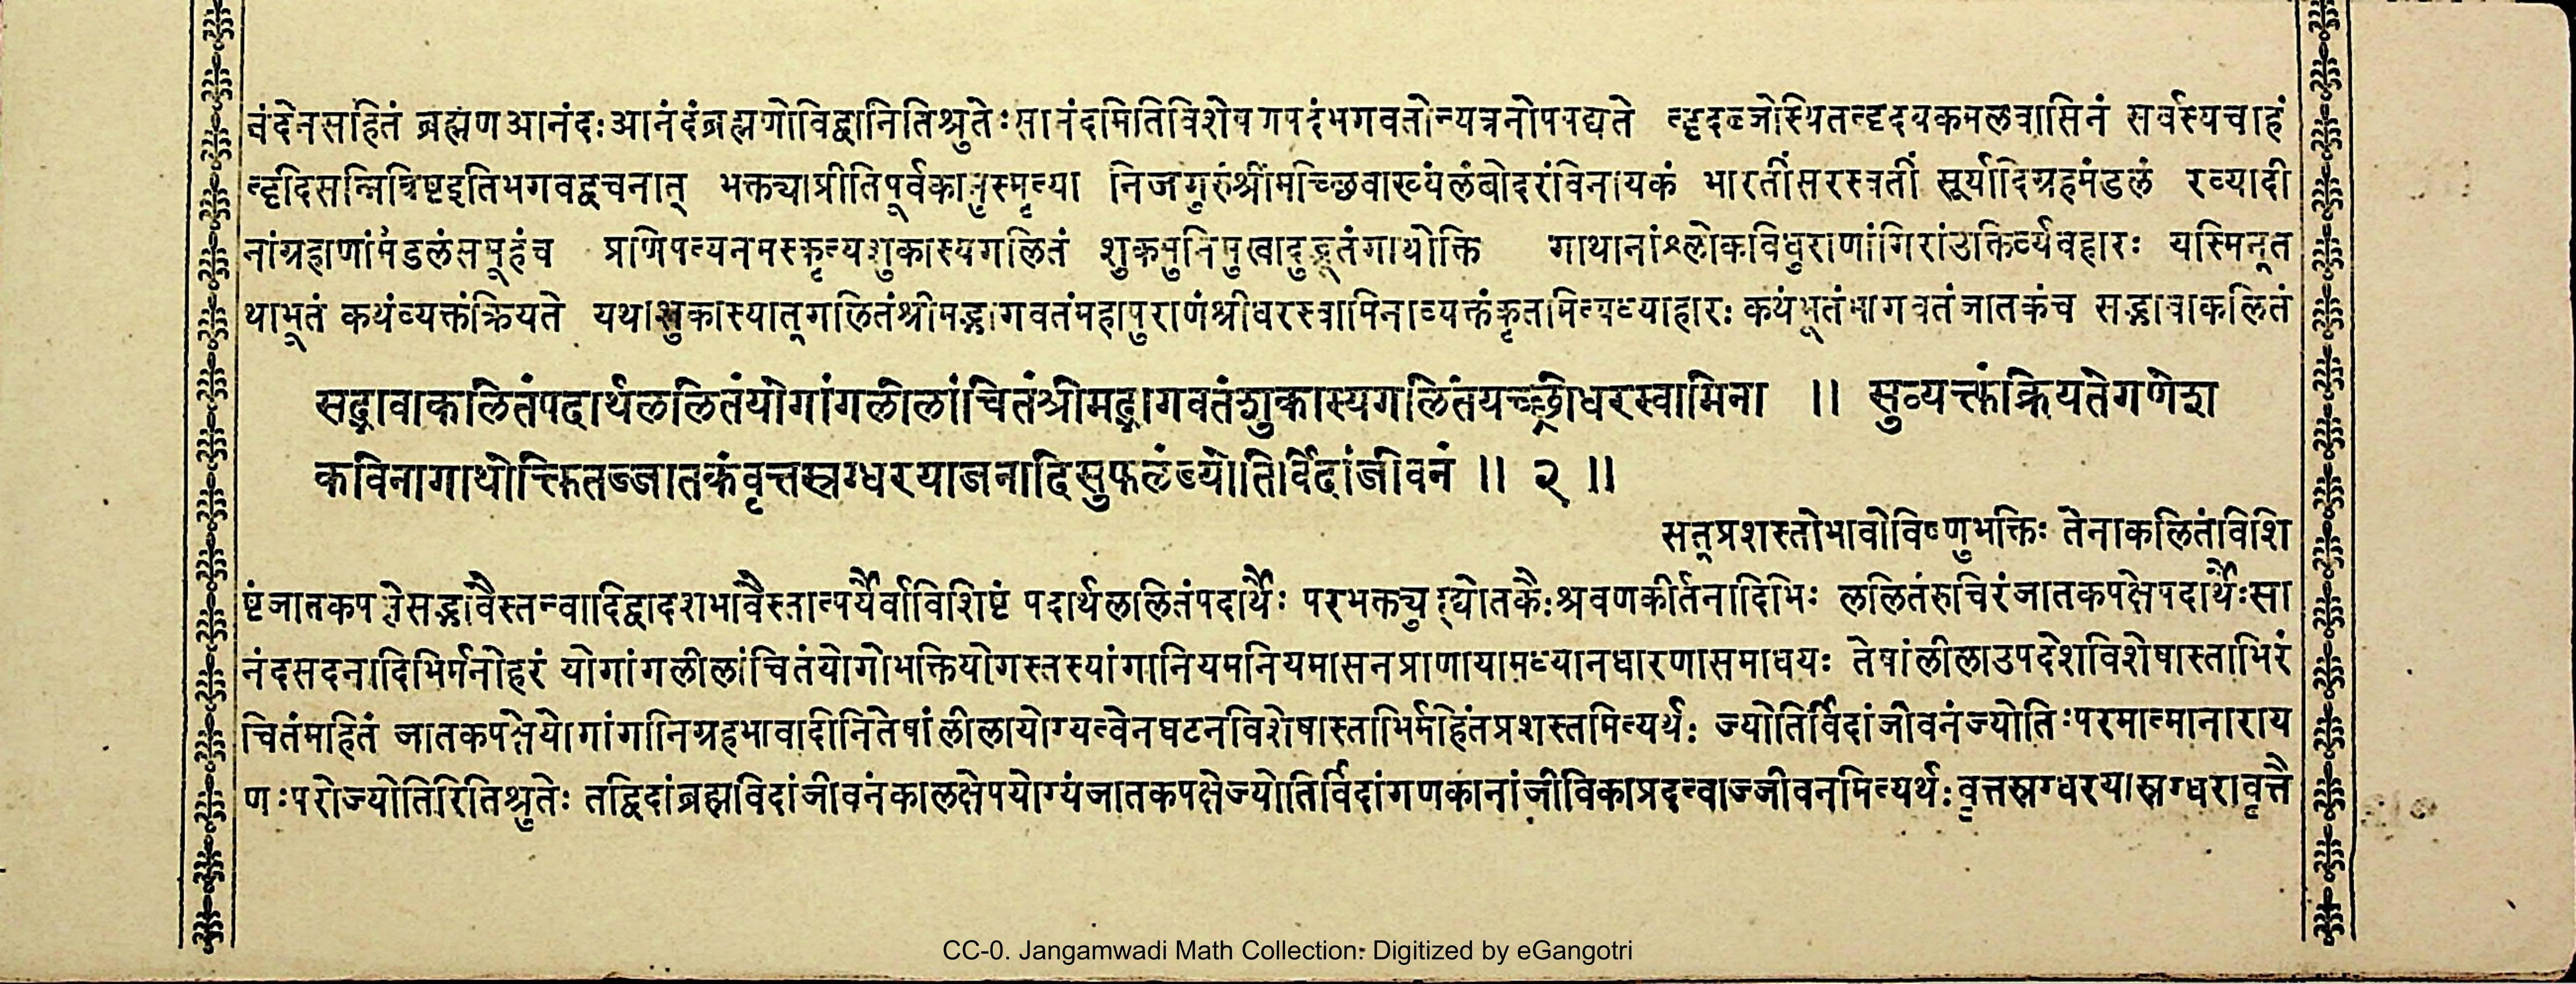 नंदेनसहितं ब्रह्मणआनंदःआनंदंब्रह्मणोविद्वानितिश्रुतेःसानंदमितिविशेषणपदंभगवतोन्यत्रनोपपद्यते हृदब्जोस्थितहृदयकमलवासिनं सर्वस्यचाहं
हृदिसन्निविष्टइतिभगवद्वचनात् भक्त्याप्रीतिपूर्वकानुस्मृत्या निजगुरुंश्रीमच्छिवाख्यंलंबोदरंविनायकं भारतींसरस्वतीं सूर्यादिग्रहमंडलं रव्यादी
नांग्रहाणांमंडलंसमूहंच प्रणिपत्यनमस्कृत्यशुकास्यगलितं शुकमुनिमुखादुद्भूतंगाथोक्ति गाथानांश्लोकविधुराणांगिरांउक्तिर्व्यवहारः यस्मिन्त
थाभूतं कथंव्यक्तंक्रियते यथाशुकास्यात्गलितंश्रीमद्भागवतंमहापुराणंश्रीधरस्वामिनाव्यक्तंकृतमित्यध्याहारः कथंभूतंभागवतंजातकंच सद्भावाकलितं
सद्भावाकलितंपदार्थललितंयोगांगलीलांचितंश्रीमद्भागवतंशुकास्यगलितंयच्छ्रीधरस्वामिना ॥ सुव्यक्तंक्रियतेगणेश
कविनागाथोक्तितज्जातकंवृत्तस्रग्धरयाजनादिसुफलंज्योतिर्विदांजीवनं ॥ २ ॥
सत्प्रशस्तोभावोविष्णुभक्तिः तेनाकलितंविशि
ष्टंजातकपक्षेसद्भावैस्तन्वादिद्वादशभावैस्तात्पर्यैर्वाविशिष्टं पदार्थललितंपदार्थैः परभक्त्युद्द्योतकैःश्रवणकीर्तनादिभिः ललितंरुचिरंजातकपक्षेपदार्थैःसा
नंदसदनादिभिर्मनोहरं योगांगलीलांचितंयोगोभक्तियोगस्तस्यांगानियमनियमासनप्राणायामध्यानधारणासमाधयः तेषांलीलाउपदेशविशेषास्ताभिरं
चितंमहितं जातकपक्षेयोगांगानिग्रहभावादीनितेषांलीलायोग्यत्वेनघटनविशेषास्ताभिर्महितंप्रशस्तमित्यर्थः ज्योतिर्विदांजीवनंज्योतिःपरमात्मानाराय
णःपरोज्योतिरितिश्रुतेः तद्विदांब्रह्मविदांजीवनंकालक्षेपयोग्यंजातकपक्षेज्योतिर्विदांगणकानांजीविकाप्रदत्वाज्जीवनमित्यर्थःवृत्तस्रग्धरयास्रग्धरावृत्तै
CC-0. Jangamwadi Math Collection. Digitized by eGangotri